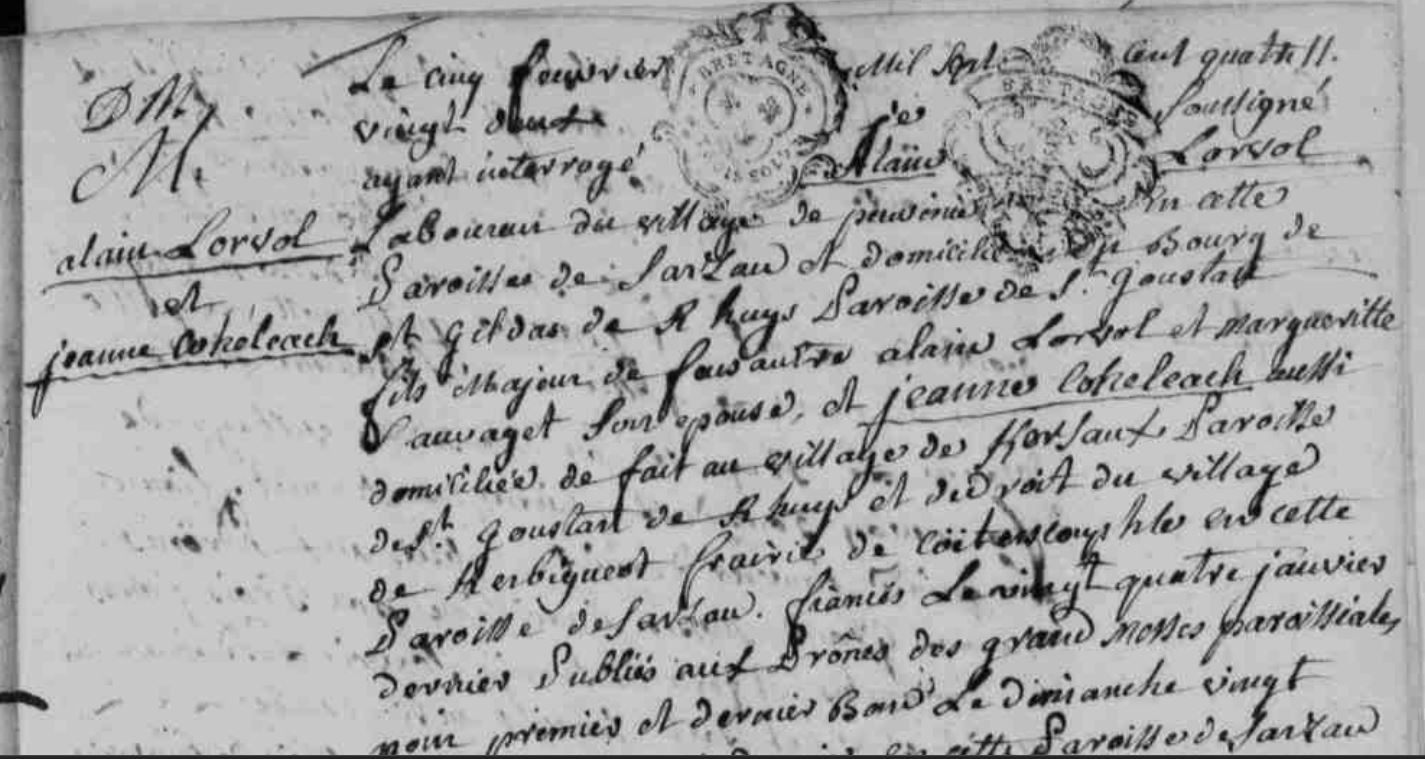 D M
M.
alain Lorvol
et
jeanne Cokeleach
Le cinq fevvrier Mil Sept Cent quatre
vingt deux Je Soussigné
ayant interrogé Alain Lorvol
Laboureur du village de en cette
Paroisse de Sarzau et domicilié Bourg de
st Gildas de Rhuys Paroisse de St. Goustan
fils Majeur de feus autre alain Lorvol et Margueritte
Sauvaget son epouse, et jeanne Cokeleach aussi
domiciliée de fait au village de Kersaux Paroisse
de St Goustan de Rhuys et de Droit du village
de Kerbigueot frairie de en cette
Paroisse de Sarzau. fiancés Le vingt quatre janvier
dernier Publiés aux Prônes des grand Messes paroissiales
pour premier et dernier Ban Le dimanche vingt
en cette Paroisse de Sarzau
BRETAGNE
BRETAGNE